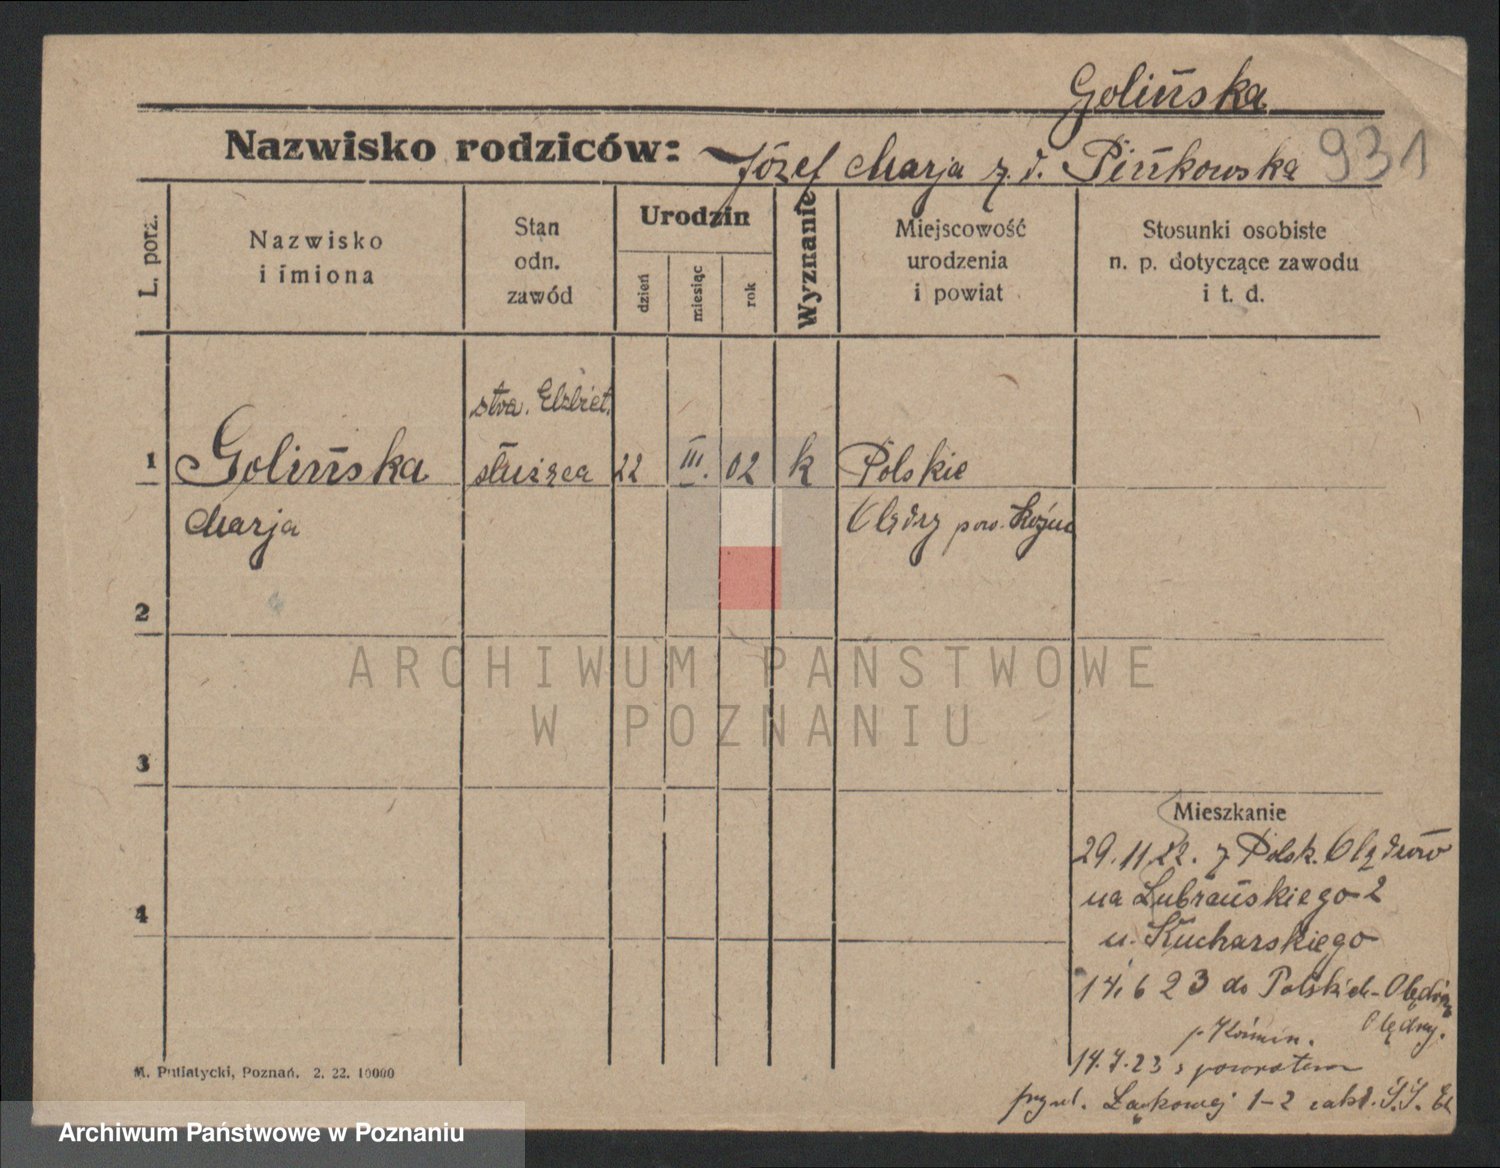 Golińska
Nazwisko rodziców: Józef Marja z. d. Pińkowska 931
L. porz.
Nazwisko
i imiona
Stan
odn.
zawód
Urodzin
dzień
miesiąc
rok
Wyznanie
Miejscowość
urodzenia
i powiat
Stosunki osobiste
n. p. dotyczące zawodu
i t. d.
stra. Elżbiet.
1 Golińska służąca 22 III. 02 k Polskie
Marja Olędry pow. Koźm
2
ARCHIWUM PAŃSTWOWE
W POZNANIU
3
Mieszkanie
29.11 22. z Polsk. Olędrów
na Lubrańskiego 2
4
u. Kucharskiego
14. 6 23 do Polskich-Olędrów
Olędry.
p. Koźmin.
14.7.23 z powrotem
przy ul. Łąkowej 1-2 zakł. S.S. El
M. Putiatycki, Poznań. 2. 22. 10000
Archiwum Państwowe w Poznaniu